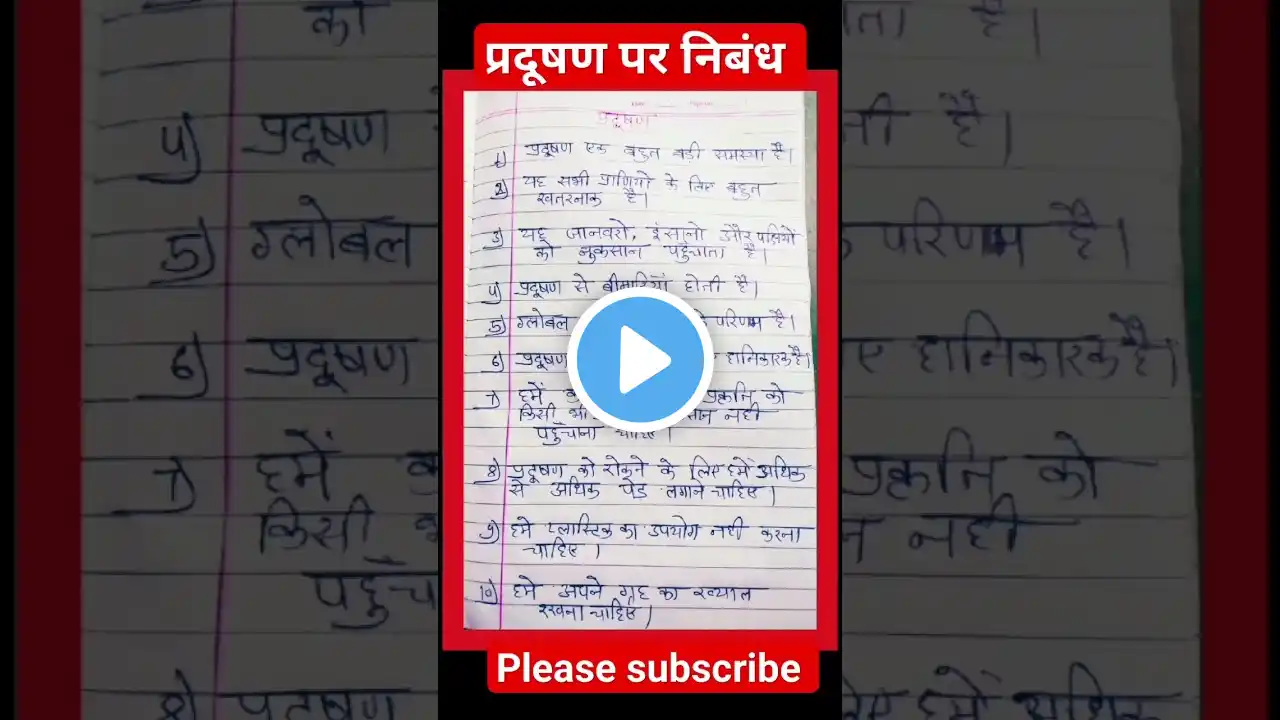 प्रदूषण पर निबंध
प्रदूषण
1) प्रदूषण एक बहुत बड़ी समस्या है।
2) यह सभी प्राणियो के लिए बहुत
खतरनाक है।
3) यह जानवरो, इंसानो और पक्षियों
को नुकसान पहुँचाता है।
4) प्रदूषण से बीमारियाँ होती है।
5) ग्लोबल परिणाम है।
6) प्रदूषण हानिकारक है।
7) हमें प्रकृति को
किसी भी नही
पहुँचाना चाहिए।
8) प्रदूषण को रोकने के लिए हमें अधिक
से अधिक पेड़ लगाने चाहिए।
9) हमे प्लास्टिक का उपयोग नही करना
चाहिए।
10) हमे अपने ग्रह का ख्याल
रखना चाहिए।
Please subscribe